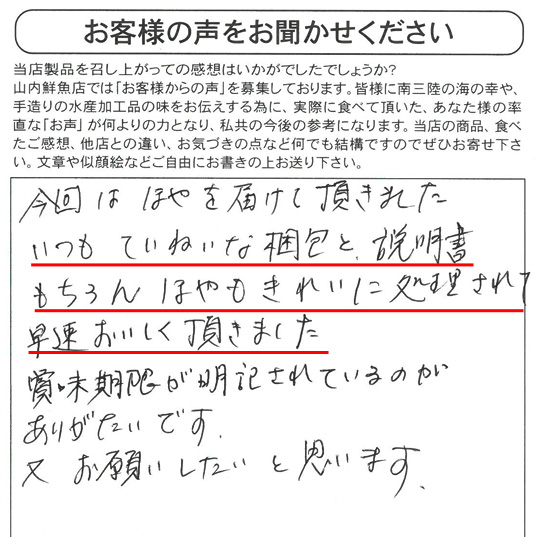 お客様の声をお聞かせください
当店製品を召し上がっての感想はいかがでしたでしょうか?
山内鮮魚店では「お客様からの声」を募集しております。皆様に南三陸の海の幸や、
手造りの水産加工品の味をお伝えする為に、実際に食べて頂いた、あなた様の率
直な「お声」が何よりの力となり、私共の今後の参考になります。当店の商品、食べ
たご感想、他店との違い、お気づきの点など何でも結構ですのでぜひお寄せ下さ
い。文章や似顔絵などご自由にお書きの上お送り下さい。
今回は ほやを届けて頂きました
いつも ていねいな梱包と、説明書
もちろん ほやもきれいに処理されて
早速 おいしく頂きました
賞味期限が明記されているのが
ありがたいです.
又 お願いしたいと思います.